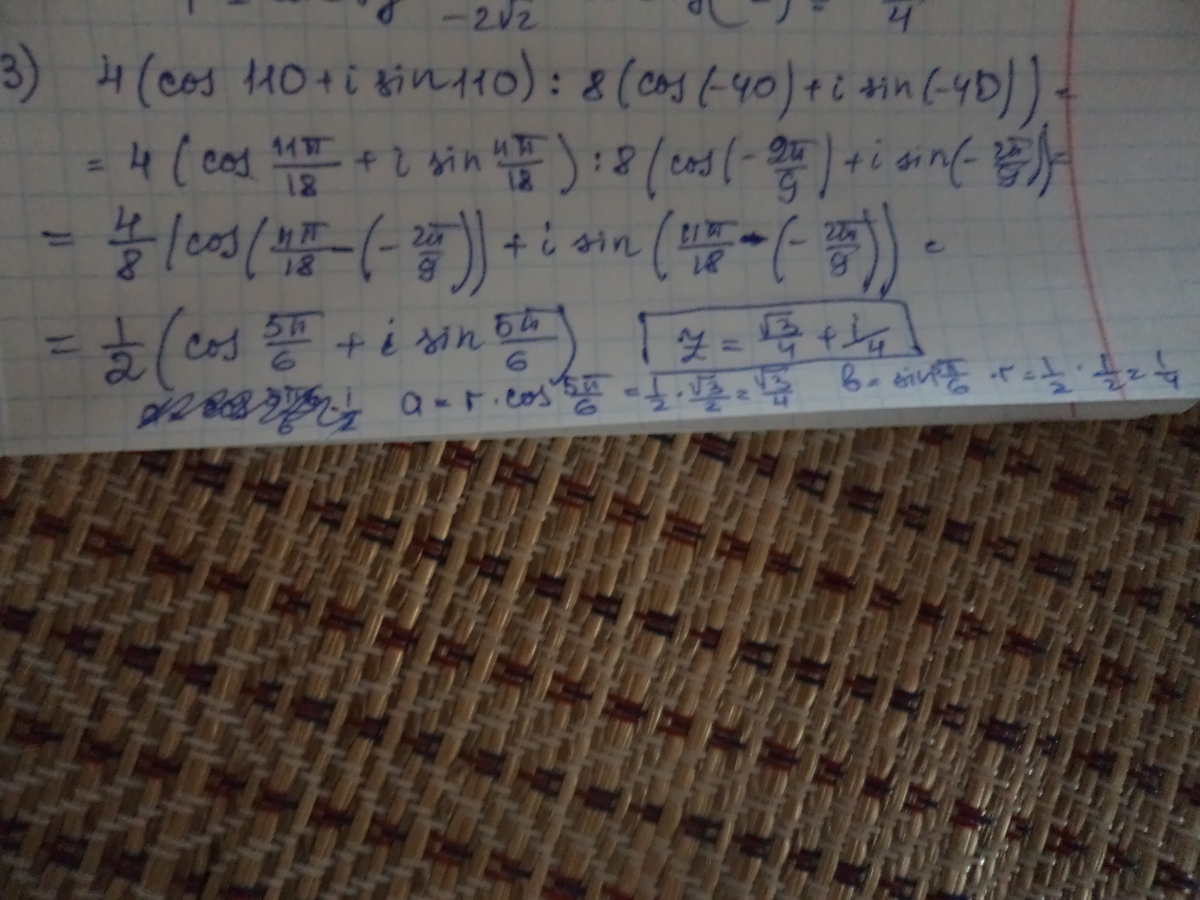 -2√2
4
3) 4(cos 110+i sin110) : 8(cos(-40)+i sin(-40))=
= 4(cos 11π/18 + i sin 11π/18) : 8(cos(-2π/9) + i sin(-2π/9))=
= 4/8 (cos(11π/18 - (-2π/9)) + i sin(11π/18 - (-2π/9)) =
= 1/2 (cos 5π/6 + i sin 5π/6) z = √3/4 + i/4
a = r · cos 5π/6 = 1/2 · √3/2 = √3/4 b = sin 5π/6 · r = 1/2 · 1/2 = 1/4